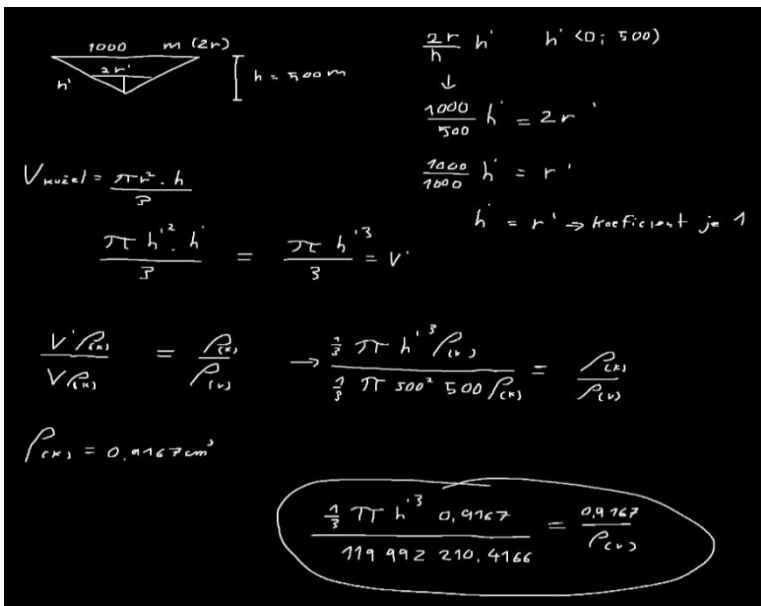 1000 m (2r)
2r'
h'
h = 500 m
2r/h h' h' (0; 500)
↓
1000/500 h' = 2r'
1000/1000 h' = r'
h' = r' => koeficient je 1
V kužel = πr². h/3
πh'². h'/3 = πh'³/3 = V'
V'ρ(k)/Vρ(k) = ρ(k)/ρ(v) → 1/3 π h'³ρ(v)/1/3 π 500² 500ρ(k) = ρ(k)/ρ(v)
ρ(k) = 0,9167cm³
1/3 π h'³ 0,9167/119 992 210.4166 = 0,9167/ρ(v)